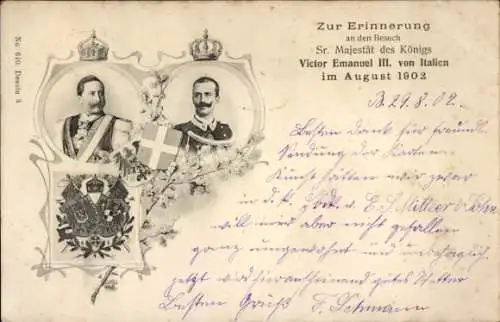 No. 610. Dessin 3
Zur Erinnerung
an den Besuch
Sr. Majestät des Königs
Victor Emanuel III. von Italien
im August 1902
B. 29. 8. 02.
Besten Dank für freundl.
Sendung der Karten.
Kunst hätten wir zwar
in d. v. E. S. Mittler & Sohn
will immer aber nicht gefallen
ganz ungewohnt und unbehaglich
jetzt wird hieraufhin gutes Wetter
Besten Gruß F.